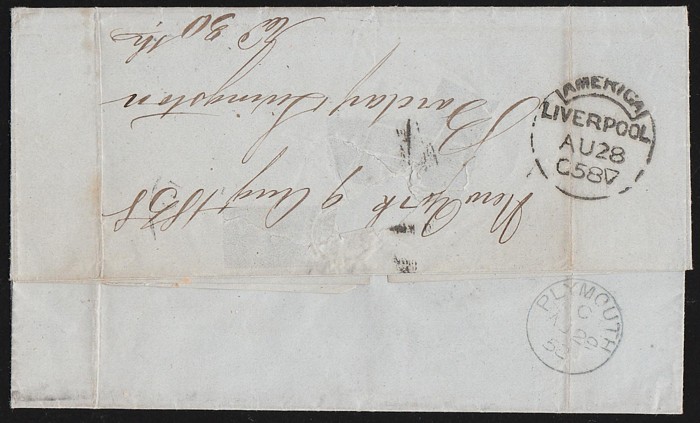 New York 9 Augt 1858
Barclay & Livingston
AMERICA
LIVERPOOL
AU 28
C58V
PLYMOUTH
C
AU 29
58